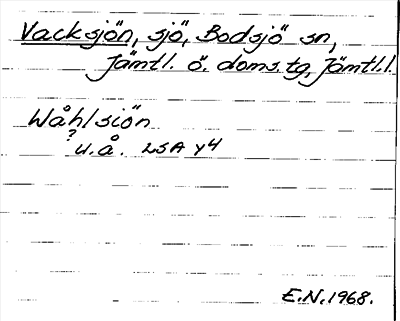 Vacksjön, sjö, Bodsjö sn,
Jämtl. ö. doms.tg, Jämtl.l.
Wåhlsiön
?
u.å. LSA Y4
E.N.1968.